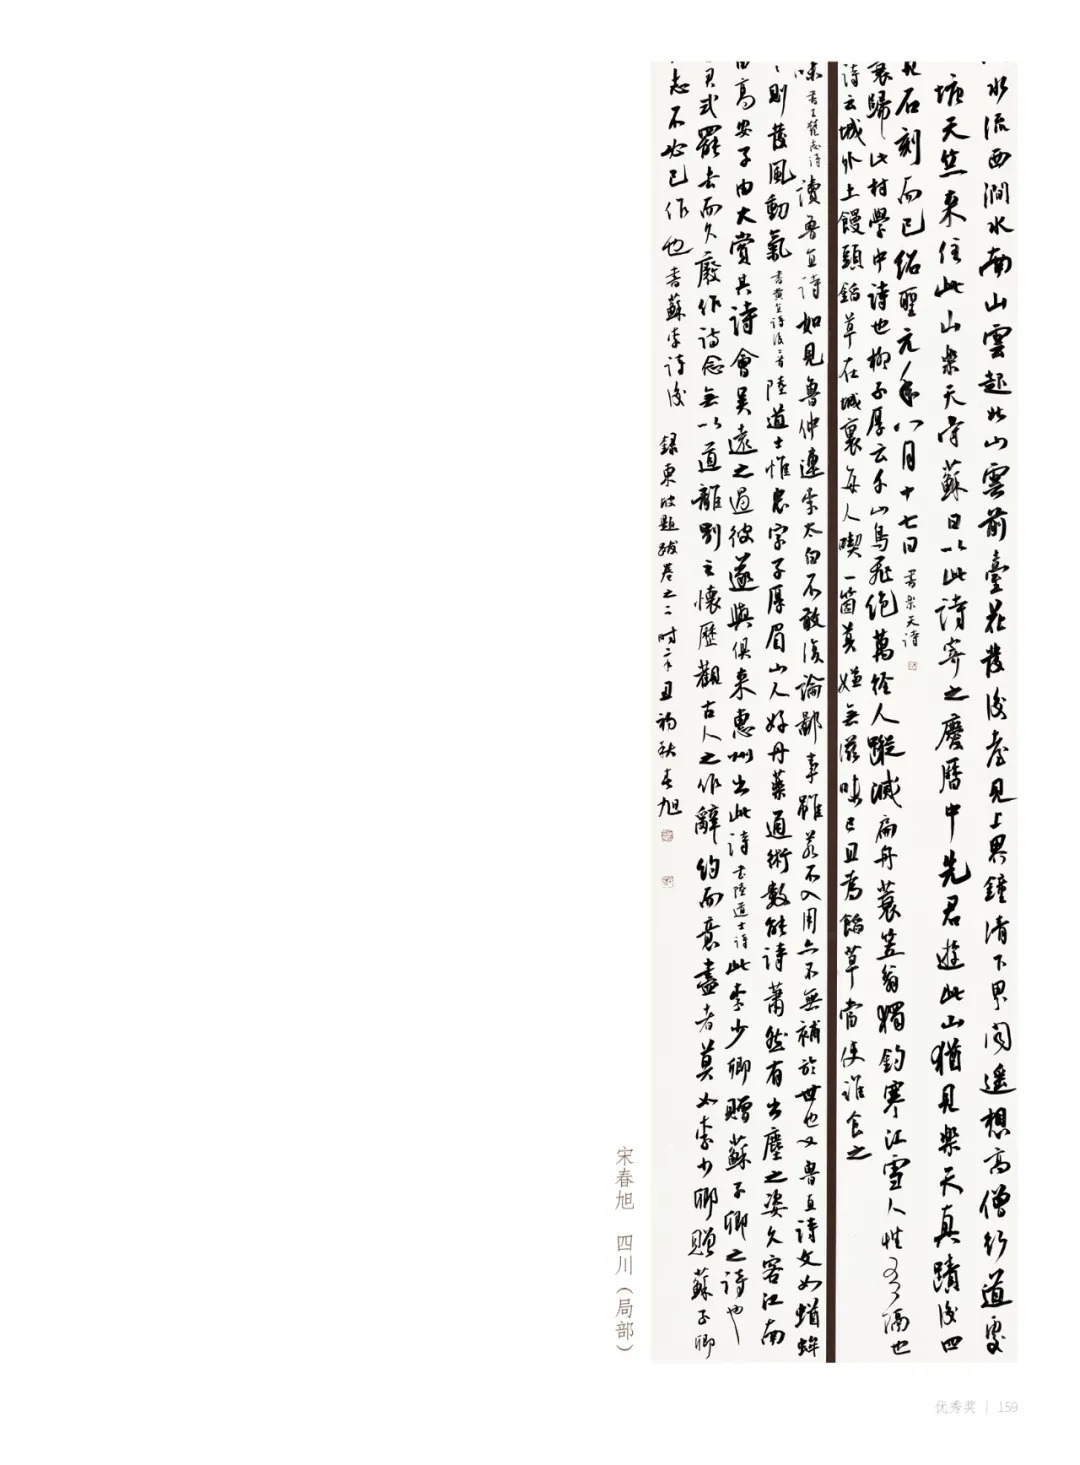 水流西澗水南山雲起北山雲前臺花發後臺見上界鐘清下界聞遥想高僧行道處
塘天竺來住此山樂天守蘇日以此詩寄之慶曆中先君遊此山猶見樂天真蹟後四
石刻而已紹聖元年八月十七日 書樂天詩
歸此村學中詩也柳子厚云千山鳥飛絶萬徑人蹤滅扁舟蓑笠翁獨釣寒江雪人性有隔也
詩云城外土饅頭餡草在城裏每人喫一箇莫嫌無滋味已且為餡草當使誰食之
味 書王梵志詩 讀魯直詩如見魯仲連李太白不敢復論鄙事雖若不入用亦不無補於世也又魯直詩文如蝤蛑
則發風動氣 書黄魯直詩後二首 陸道士惟忠字子厚眉山人好丹藥通術數能詩蕭然有出塵之姿久客江南
高安子由大賞其詩會吴遠之過彼遂與俱來惠州出此詩 書陸道士詩 此李少卿贈蘇子卿之詩也
武罷去而久廢作詩念無以道離别之懷歷觀古人之作辭約而意盡者莫如李少卿贈蘇子卿
志不必己作也書蘇李詩後
録東坡題跋卷之二時辛丑初秋春旭
宋春旭 四川（局部）
优秀奖 | 159